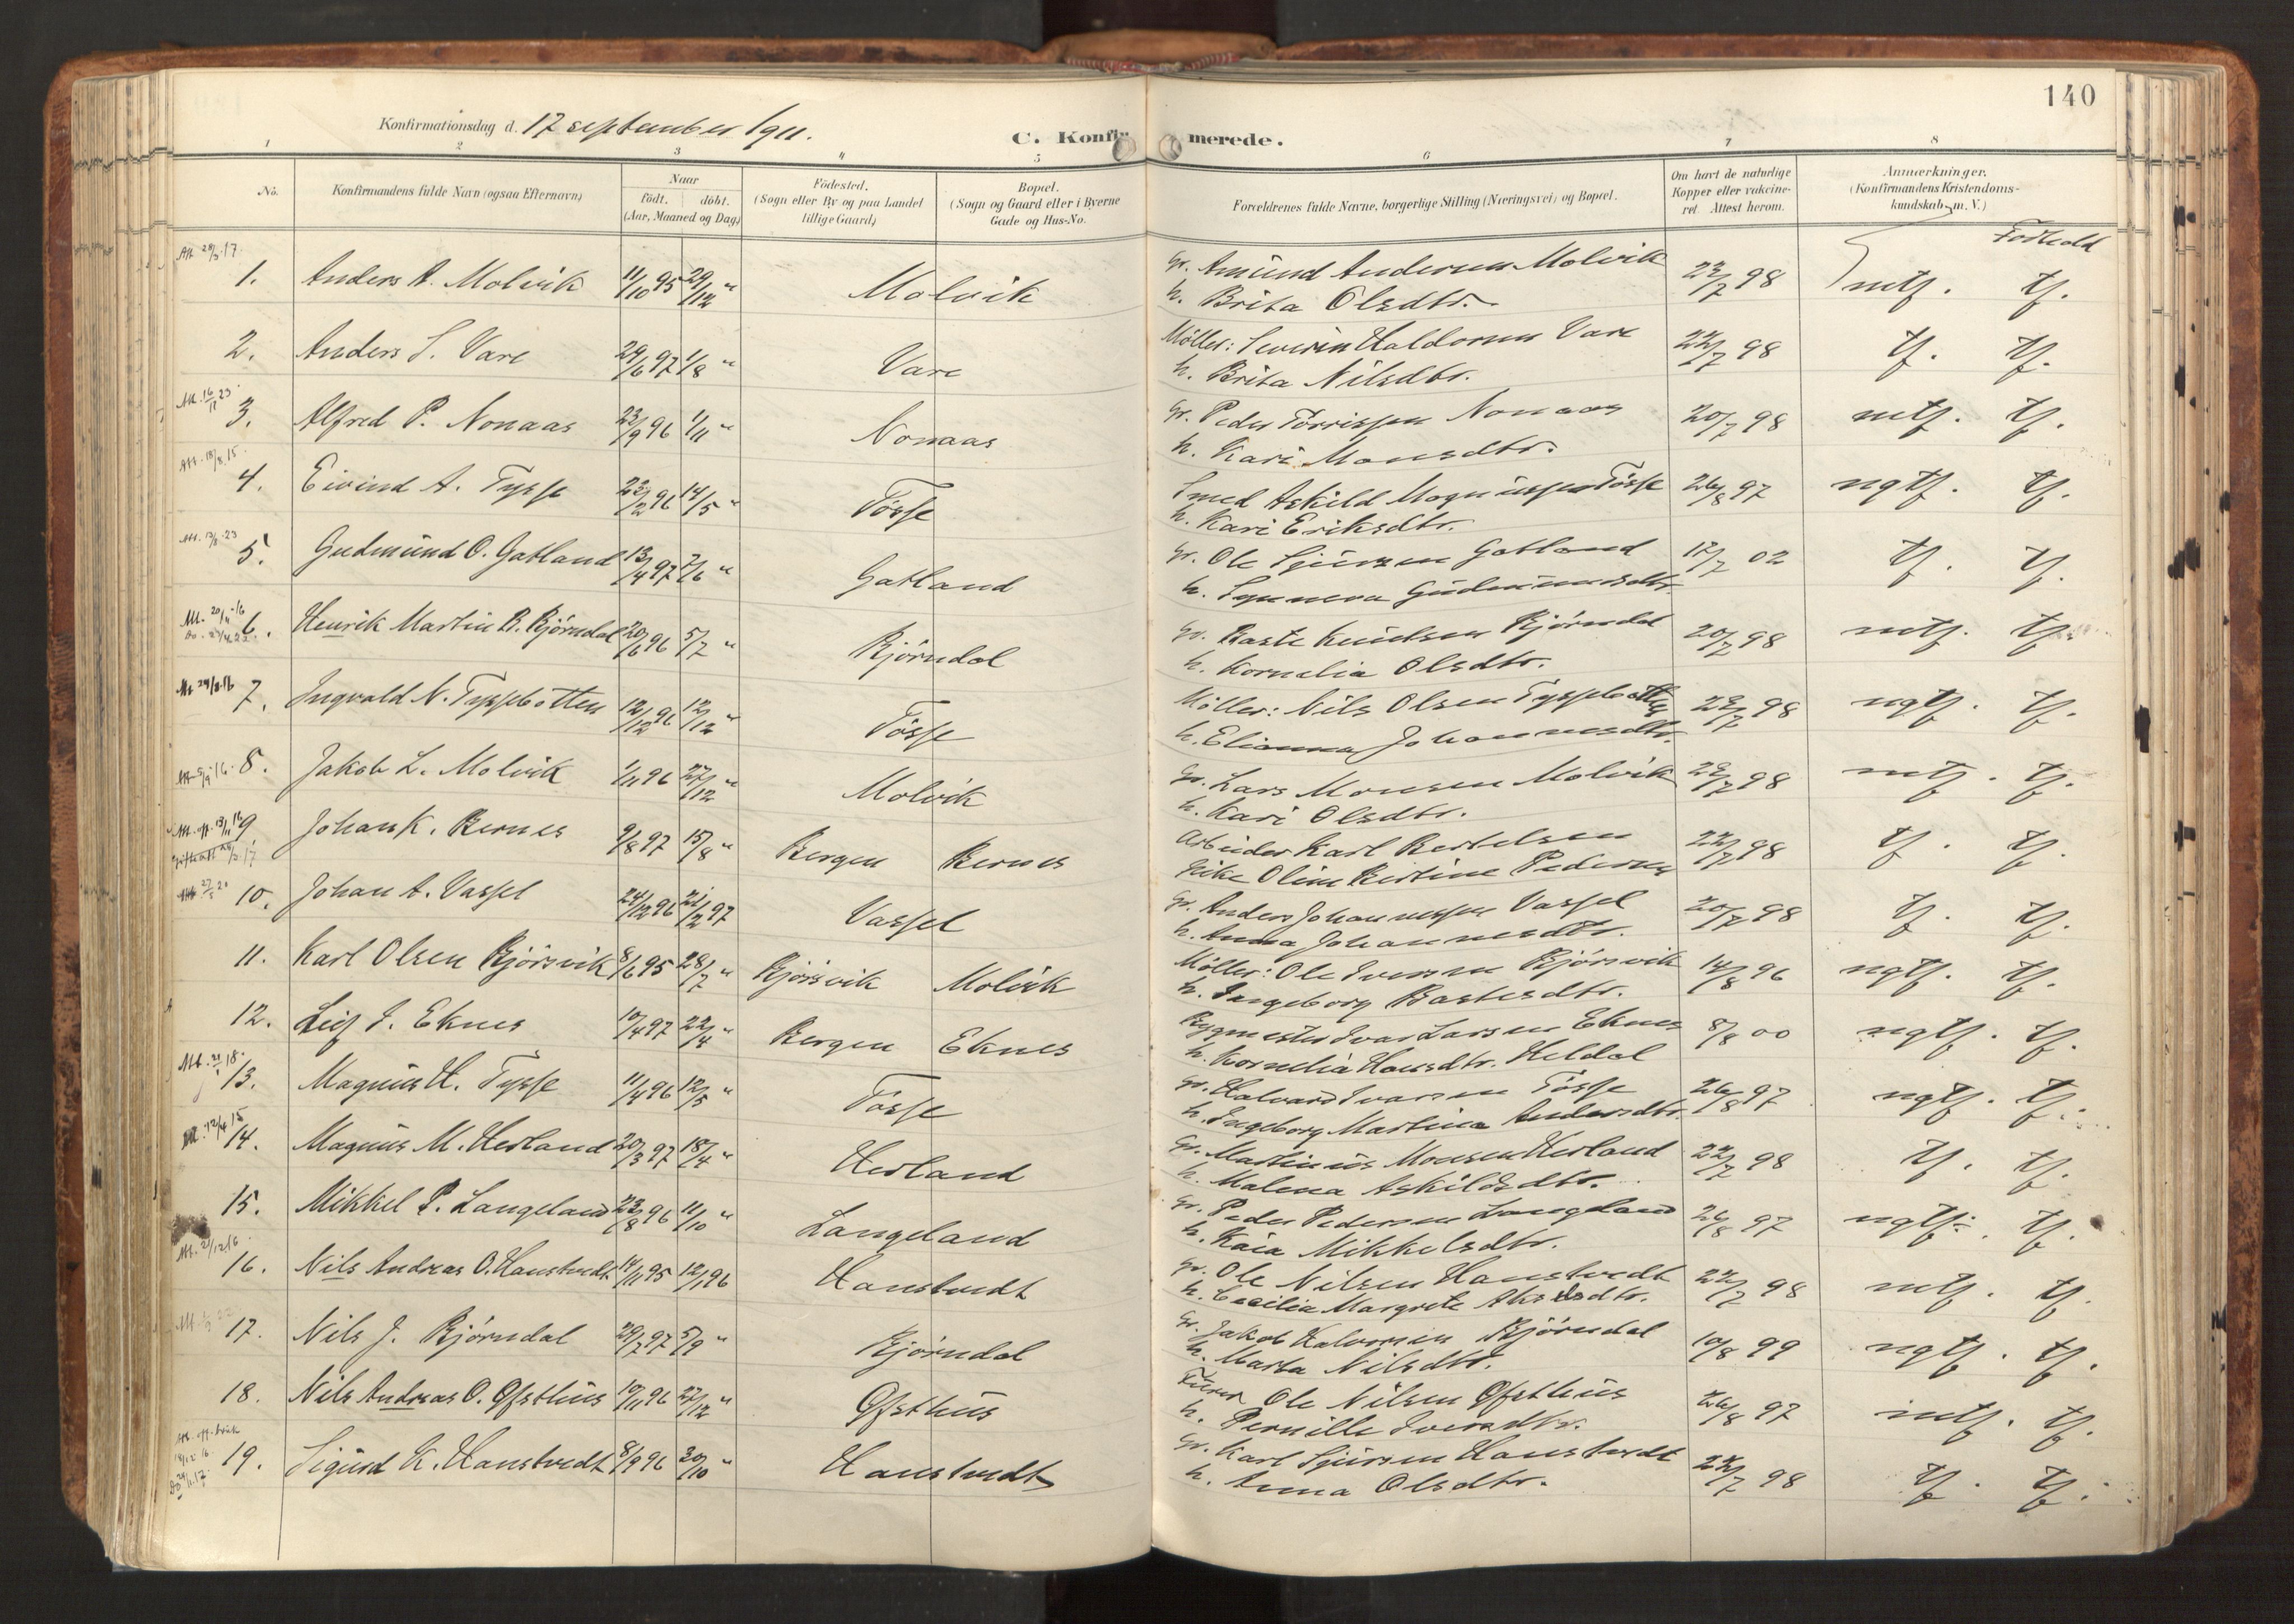 140
Konfirmationsdag d. 17 september 1911.
C. Konfirmerede.
1 2 3 4 5 6 7 8
No. Konfirmandens fulde Navn (ogsaa Efternavn) Naar født. døbt. (Aar, Maaned og Dag) Fødested. (Sogn eller By og paa Landet tillige Gaard) Bopæl. (Sogn og Gaard eller i Byerne Gade og Hus-No. Forældrenes fulde Navne, borgerlige Stilling (Næringsvei) og Bopæl. Om havt de naturlige Kopper eller vakcineret Attest herom. Anmærkninger. (Konfirmandens Kristendomskundskab m. V.)
Forhold
1. Anders A. Molvik 11/10 95 29/12 " Molvik Gr. Amund Andersen Molvik 22/7 98 mtf. tf.
h. Brita Olsdtr.
2. Anders S. Vare 29/6 97 1/8 " Vare Møller: Severin Haldorsen Vare 22/7 98 tf. tf.
h. Brita Nilsdtr.
3. Alfred P. Nonaas 23/9 96 1/11 " Nonaas Gr. Peder Torrissen Nonaas 20/7 98 mtf. tf.
h. Kari Monsdtr.
4. Eivind A. Tysse 22/2 96 14/5 " Tösse Smed Askild Magnüssen Tösse 26/8 97 ngtf. tf.
h. Kari Eriksdtr.
5. Gudmünd O. Gatland 13/4 97 7/6 " Gatland Gr. Ole Sjürsen Gatland 17/7 02 tf. tf.
h. Synneva Gudmündsdtr.
6. Henrik Martin B. Björndal 20/6 96 5/7 " Björndal Gr. Baste Knüdsen Björndal 20/7 98 mtf. tf.
h. Kornelia Olsdtr.
7. Ingvald N. Tyssebotten 12/10 96 12/12 " Tösse Møller: Nils Olsen Tyssebotten 22/7 98 ngtf. tf.
h. Elianna Johannesdtr.
8. Jakob L. Molvik 1/11 96 27/12 " Molvik Gr. Lars Monsen Molvik 22/7 98 mtf. tf.
h. Kari Olsdtr.
9. Johan K. Bernes 9/8 97 15/8 " Bergen Bernes Arbeider Karl Bertelsen 22/7 98 tf. tf.
Pike Oline Bertine Pedersen
10. Johan A. Vassel 24/12 96 21/2 97 Vassel Gr. Anders Johannessen Vassel 20/7 98 tf. tf.
h. Anna Johannesdtr.
11. Karl Olsen Björsvik 8/6 95 28/7 " Björsvik Molvik Møller: Ole Iversen Björsvik 14/8 96 ngtf. tf.
h. Ingeborg Bastesdtr.
12. Leif I. Eknes 10/4 97 22/4 " Bergen Eknes Bygmester Ivar Larsen Eknes 8/8 00 ngtf. tf.
h. Kornelia Hansdtr. Heldal
13. Magnüs H. Tysse 11/4 96 12/5 " Tösse Gr. Halvard Ivarsen Tösse 26/8 97 ngtf. tf.
h. Ingeborg Martina Andersdtr.
14. Magnüs M. Herland 20/3 97 18/4 " Herland Gr. Martinüs Monsen Herland 22/7 98 tf. tf.
h. Malena Askildsdtr.
15. Mikkel P. Langeland 23/8 96 11/10 " Langeland Gr. Peder Pedersen Langeland 26/8 97 ngtf. tf.
h. Kaia Mikkelsdtr.
16. Nils Andreas O. Hanstvedt 14/11 95 12/1 96 Hanstvedt Gr. Ole Nilsen Hanstvedt 22/7 98 mtf. tf.
h. Cecilia Margrete Akselsdtr.
17. Nils J. Björndal 29/7 97 5/9 " Björndal Gr. Jakob Halvorsen Björndal 10/8 99 ngtf. tf.
h. Marta Nilsdtr.
18. Nils Andreas O. Ofsthüs 19/11 96 27/12 " Ofsthüs Ole Nilsen Ofsthüs 26/8 97 mtf. tf.
h. Pernille Iversdtr.
19. Sigürd K. Hanstvedt 8/9 96 30/10 " Hanstvedt Gr. Karl Sjürsen Hanstvedt 22/7 98 tf. tf.
h. Anna Olsdtr.